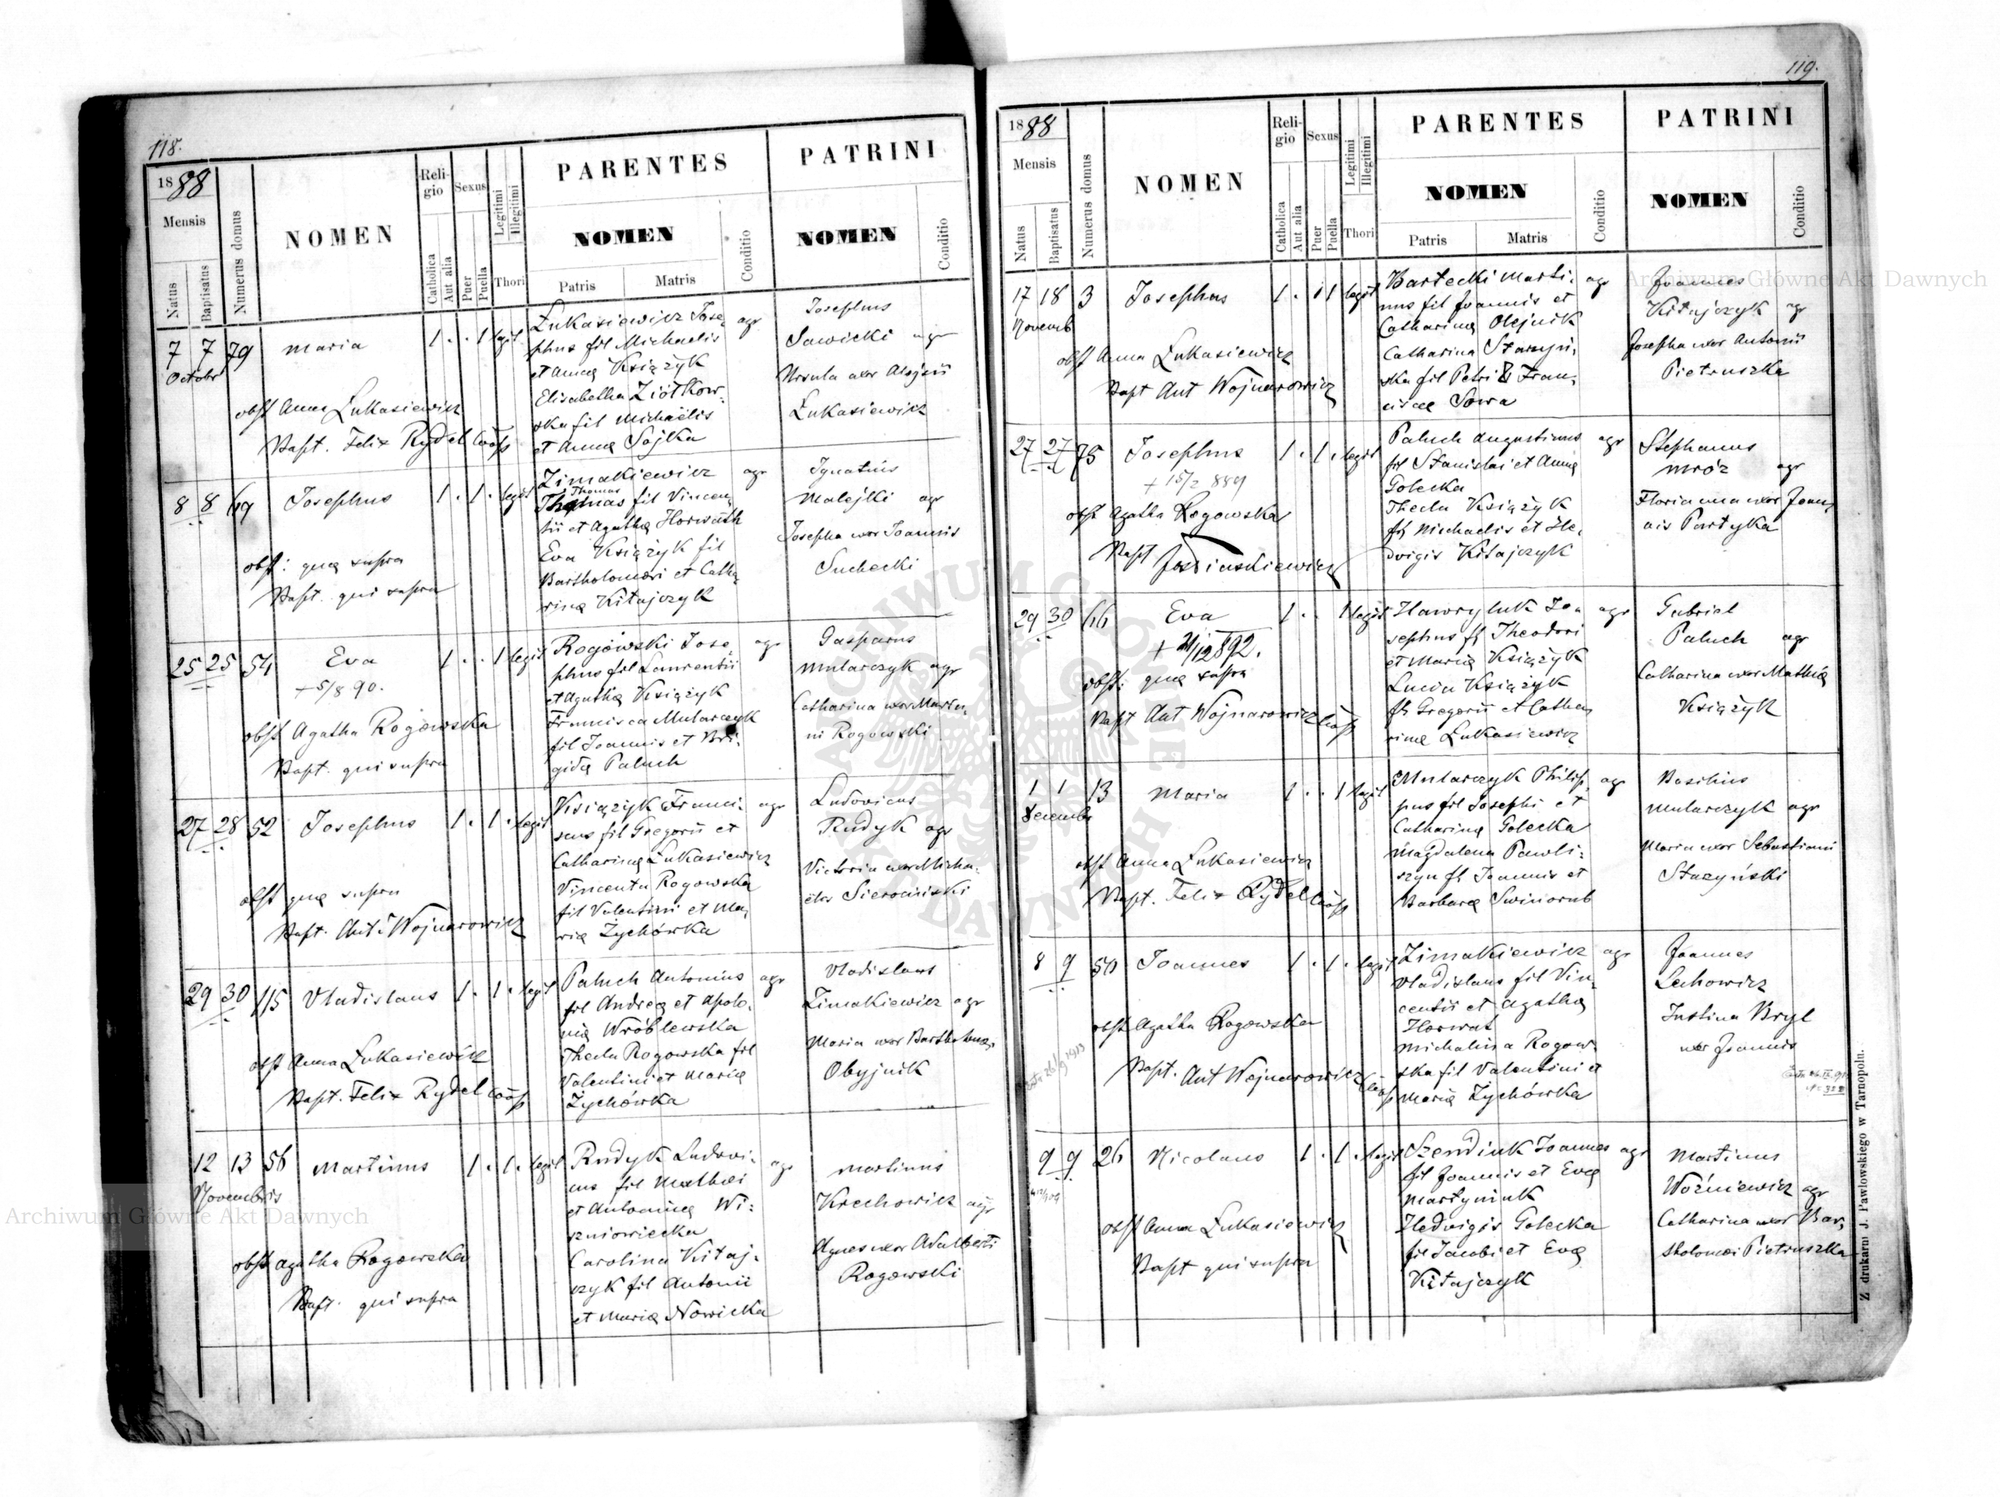 118.
1888
Mensis
Natus
Baptisatus
Numerus domus
NOMEN
Religio
Catholica
Aut alia
Sexus
Puer
Puella
Legitimi
Illegitimi
Thori
PARENTES
NOMEN
Patris
Matris
Conditio
PATRINI
NOMEN
Conditio
7 7 79 Maria 1 . . 1 legit
Octobr
obst Anna Łukasiewicz
Bapt. Felix Rydel Coop
Łukasiewicz Jose- agr
phus fil Michaelis
et Anna Książyk
Elisabetha Ziółkow-
ska fil Michaëlis
et Anna Sojka
Josephus
Sawicki agr
Ursula uxor Alojsii
Łukasiewicz
8 8 69 Josephus 1 . 1 . legit
obst: quæ supra
Bapt. qui supra
Zimakiewicz agr
Thomas
Thomas fil Vincen-
tii et Agatha Horwath
Eva Książyk fil
Bartholomæi et Catha-
rina Kitajczyk
Ignatius
Malejki agr
Josepha uxor Joannis
Suchecki
25 25 54 Eva 1 . . 1 legit
+ 5/8 90.
obst Agatha Rogowska
Bapt. qui supra
Rogowski Jose- agr
phus fil Laurentii
et Agatha Książyk
Francisca Mularczyk
fil Joannis et Bri-
gida Paluch
Gasparus
Mularczyk agr
Catharina uxor Marti-
ni Rogowski
27 28 52 Josephus 1 . 1 . legit
obst quæ supra
Bapt. Ant. Wojnarowicz
Książyk Franci- agr
scus fil Gregorii et
Catharina Łukasiewicz
Vincenta Rogowska
fil Valentini et Ma-
ria Zychówka
Ludovicus
Rudyk agr
Victoria uxor Micha-
ëlis Sierociński
29 30 115 Vladislaus 1 . 1 . legit
obst Anna Łukasiewicz
Bapt. Felix Rydel Coop
Paluch Antonius agr
fil Andrea et Apolo-
nia Wróblewska
Thecla Rogowska fil
Valentini et Maria
Zychówka
Vladislaus
Zimakiewicz agr
Maria uxor Bartholomæi
Obyjnik
12 13 56 Martinus 1 . 1 . legit
Novembris
obst Agatha Rogowska
Bapt. qui supra
Rudyk Ludovi- agr
cus fil Mathæi
et Antonina Wi-
szniowiecka
Carolina Kitaj-
czyk fil Antonii
et Maria Nowicka
Martinus
Krechowicz agr
Agnes uxor Adalberti
Rogowski
119.
1888
Mensis
Natus
Baptisatus
Numerus domus
NOMEN
Religio
Catholica
Aut alia
Sexus
Puer
Puella
Legitimi
Illegitimi
Thori
PARENTES
NOMEN
Patris
Matris
Conditio
PATRINI
NOMEN
Conditio
17 18 3 Josephus 1 . 1 1 legit
Novemb
obst Anna Łukasiewicz
Bapt Ant Wojnarowicz
Bartecki Marti- agr
nus fil Joannis et
Catharina Olejnik
Catharina Starzyń-
ska fil Petri & Fran-
cisca Sowa
Joannes
Kitajczyk agr
Josepha uxor Antonii
Pietruszka
27 27 75 Josephus 1 . 1 . legit
+ 15/2 889
obst Agatha Rogowska
Bapt
Paluch Augustinus agr
fil Stanislai et Anna
Golecka
Thecla Książyk
fil Michaelis et He-
dvigis Kitajczyk
Stephanus
Mróz agr
Florianna uxor Joan-
nis Partyka
29 30 66 Eva 1 . . 1 legit
obst: quæ supra
Bapt Ant Wojnarowicz Coop
Hawryluk Jo- agr
sephus fil Theodori
et Maria Książyk
Lucia Książyk
fil Gregorii et Catha-
rina Łukasiewicz
Gabriel
Paluch agr
Catharina uxor Mathia
Książyk
1 1 13 Maria 1 . . 1 legit
Decembr
obst Anna Łukasiewicz
Bapt. Felix Rydel Coop
Mularczyk Philip- agr
pus fil Josephi et
Catharina Golecka
Magdalena Pawli-
szyn fil Joannis et
Barbara Swiniorub
Basilius
Mularczyk agr
Maria uxor Sebastiani
Starzyński
8 9 50 Joannes 1 . 1 . legit
obst Agatha Rogowska
Bapt. Ant Wojnarowicz Coop
Zimakiewicz agr
Vladislaus fil Vin-
centii et Agatha
Horwat
Michalina Rogow-
ska fil Valentini et
Maria Zychówka
Joannes
Lechowicz
Justina Bryl
uxor Joannis
9 9 26 Nicolaus 1 . 1 . legit
obst Anna Łukasiewicz
Bapt qui supra
Szendiuk Joannes agr
fil Joannis et Eva
Martyniuk
Hedvigis Golecka
fil Jacobi et Eva
Kitajczyk
Martinus
Woźniewicz agr
Catharina uxor Bar-
tholomæi Pietruszka
Z drukarni J. Pawlowskiego w Tarnopolu.
Archiwum Główne Akt Dawnych
Archiwum Główne Akt Dawnych
ARCHIWUM GŁÓWNE
AKT DAWNYCH